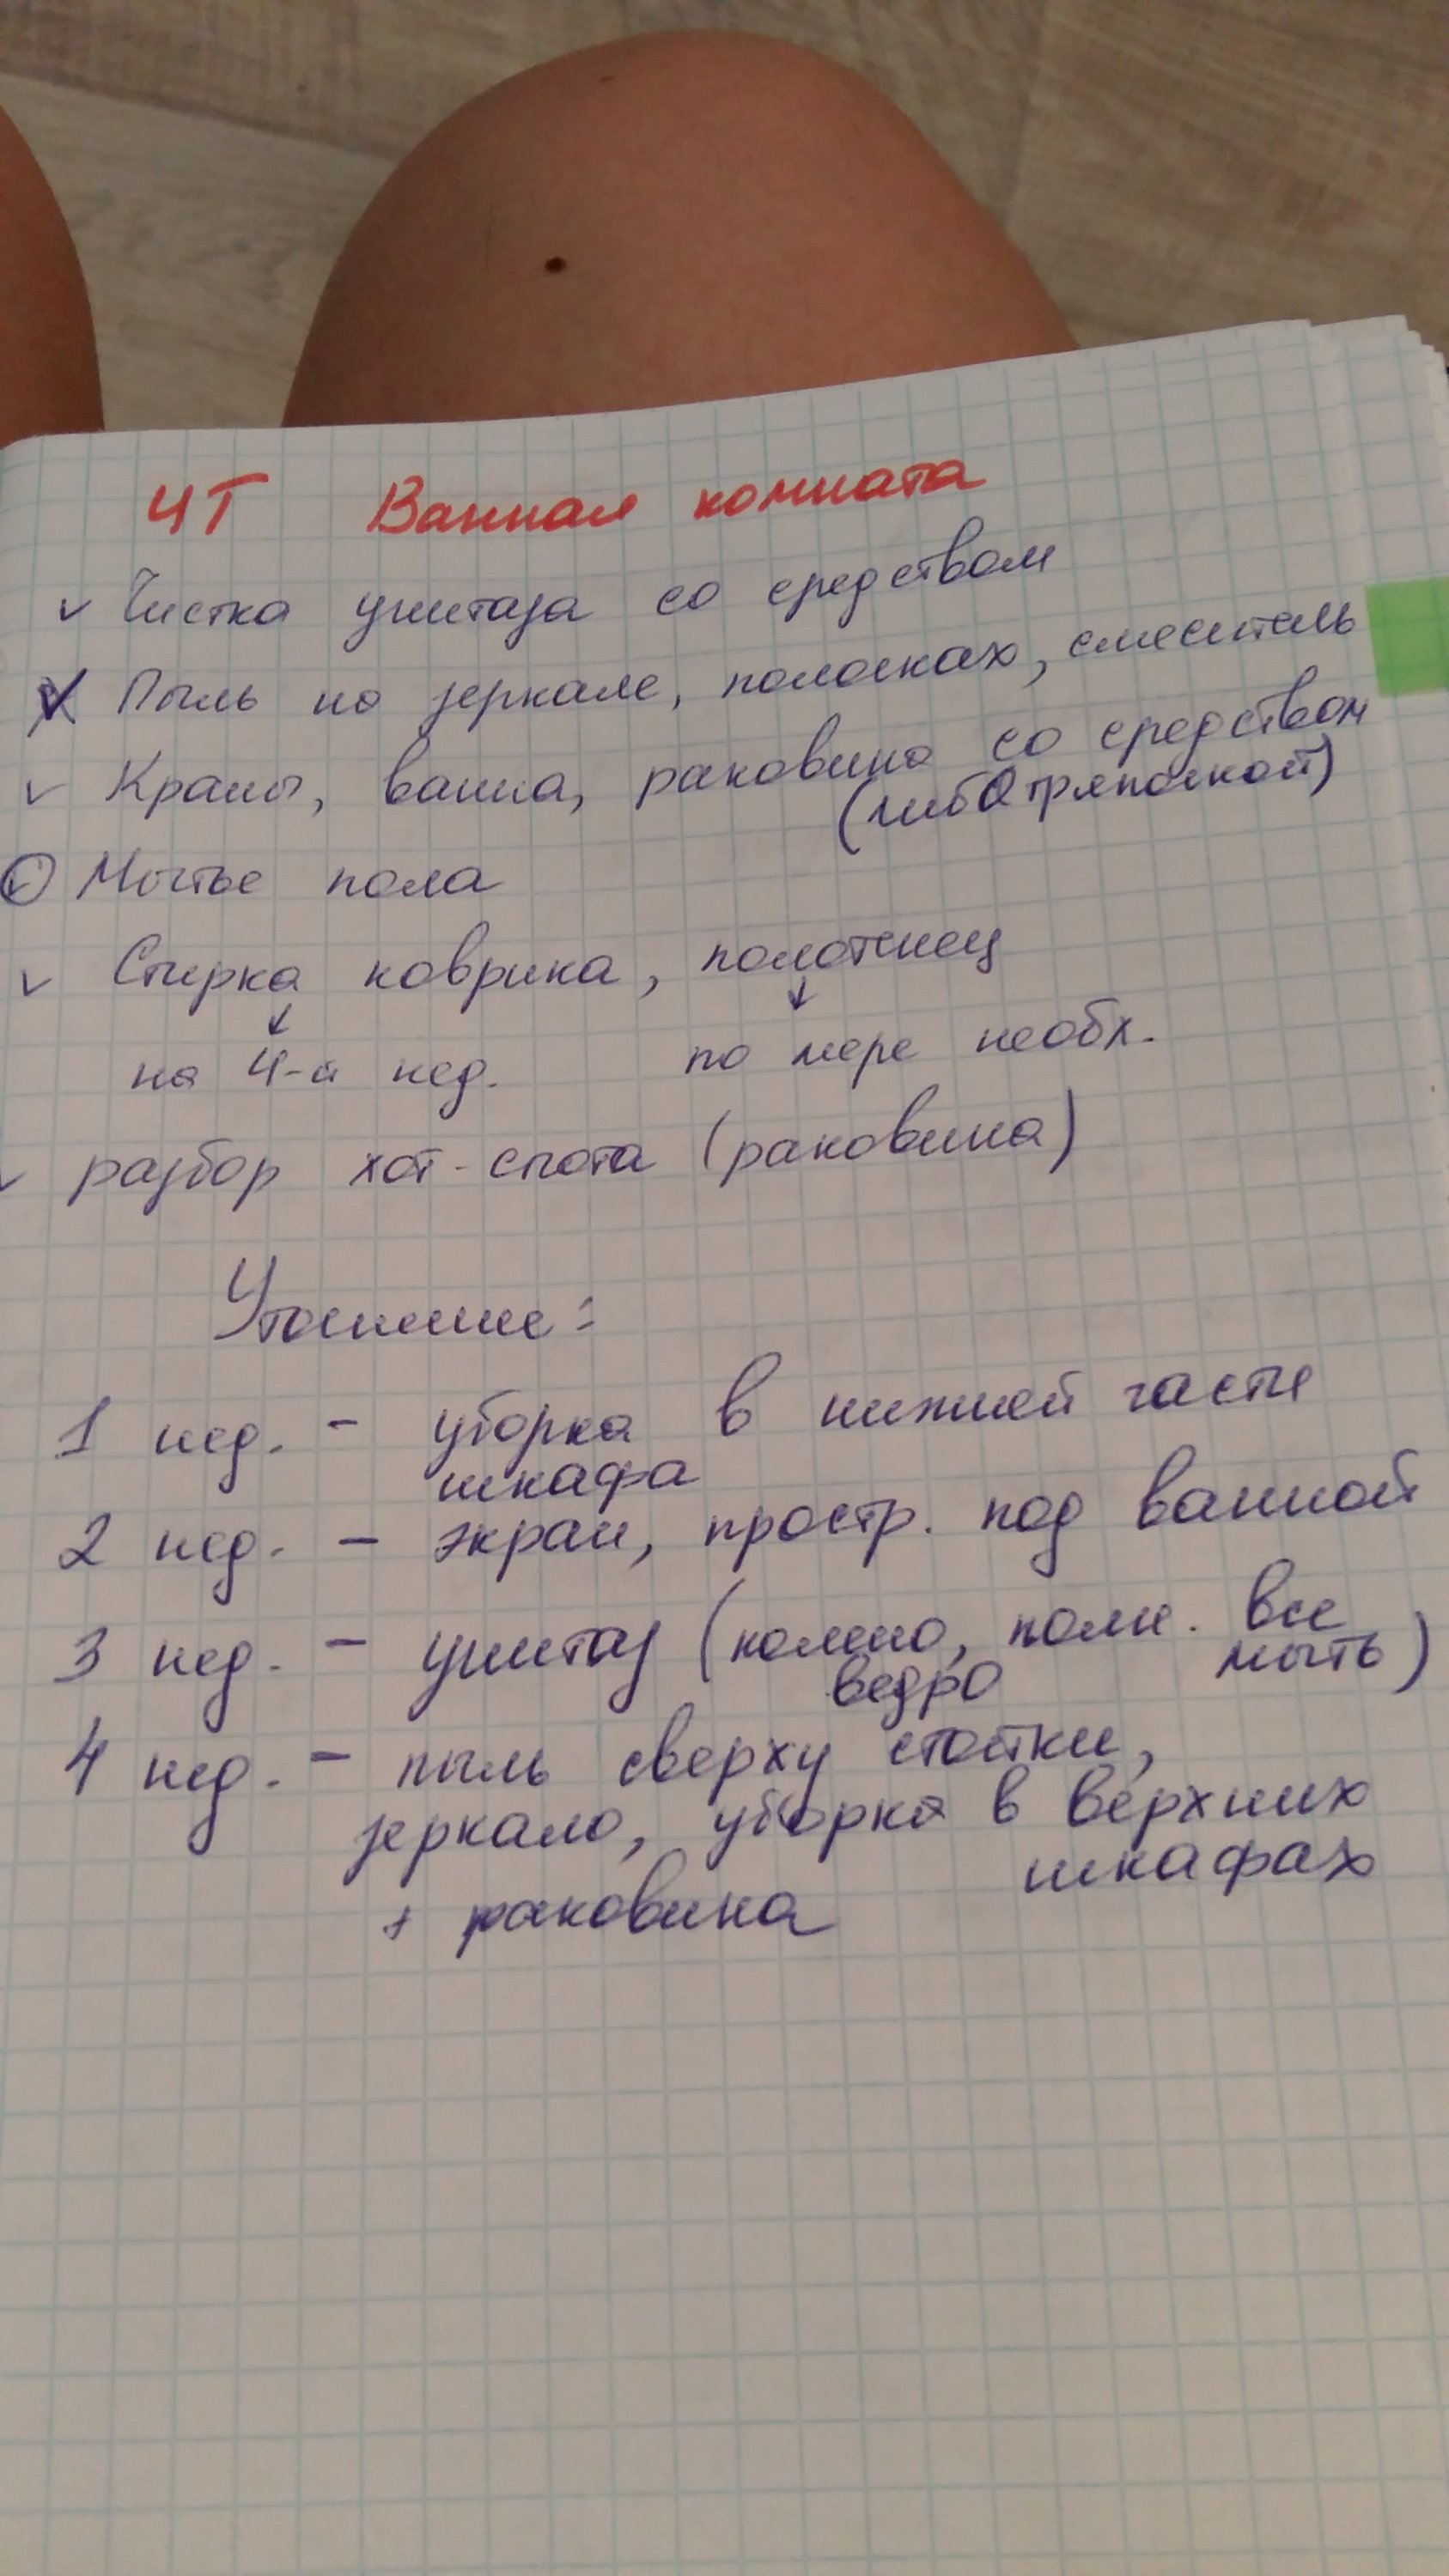 ЧТ Ванная комната
Чистка унитаза со средством
Пыль на зеркале, полочках, смеситель
Краны, ванна, раковина со средством
(либо тряпочкой)
Мытье пола
Стирка коврика, полотенец
на 4-й нед. по мере необх.
разбор хот-спота (раковина)
Уточнение:
1 нед. - уборка в нижней части
шкафа
2 нед. - экран, простр. под ванной
3 нед. - унитаз (колено, полн. все
ведро мыть)
4 нед. - пыль сверху стойки,
зеркало, уборка в верхних
шкафах
+ раковина